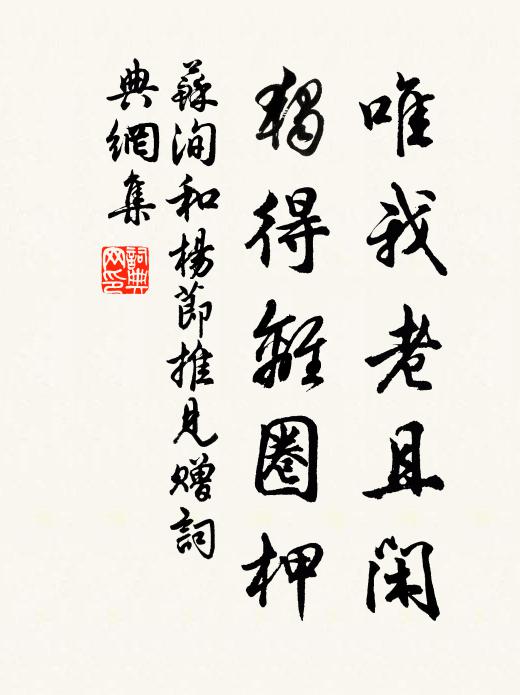 唯我老且閑
獨得離圈柙
蘇洵和楊節推見贈詞
典網集
詞典
网印